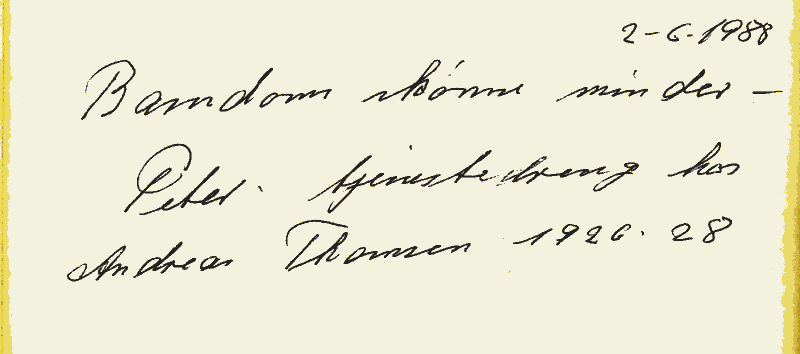 2-6-1988
Barndom skönne minder -
Peter. tjenestedreng hos
Andreas Thomsen 1926-28